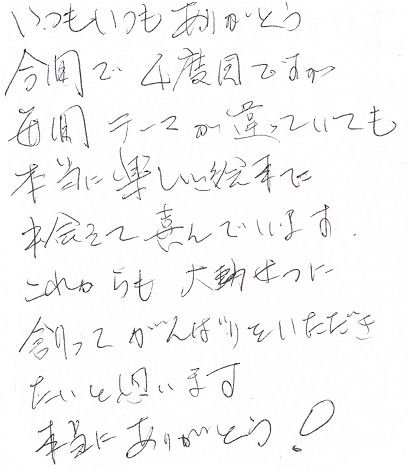 いつもいつもありがとう
今回で4度目ですが
毎回テーマが違っていても
本当に楽しい絵本に
出会えて喜んでいます.
これからも大切に
創ってがんばりをいただき
たいと思います
本当にありがとう!